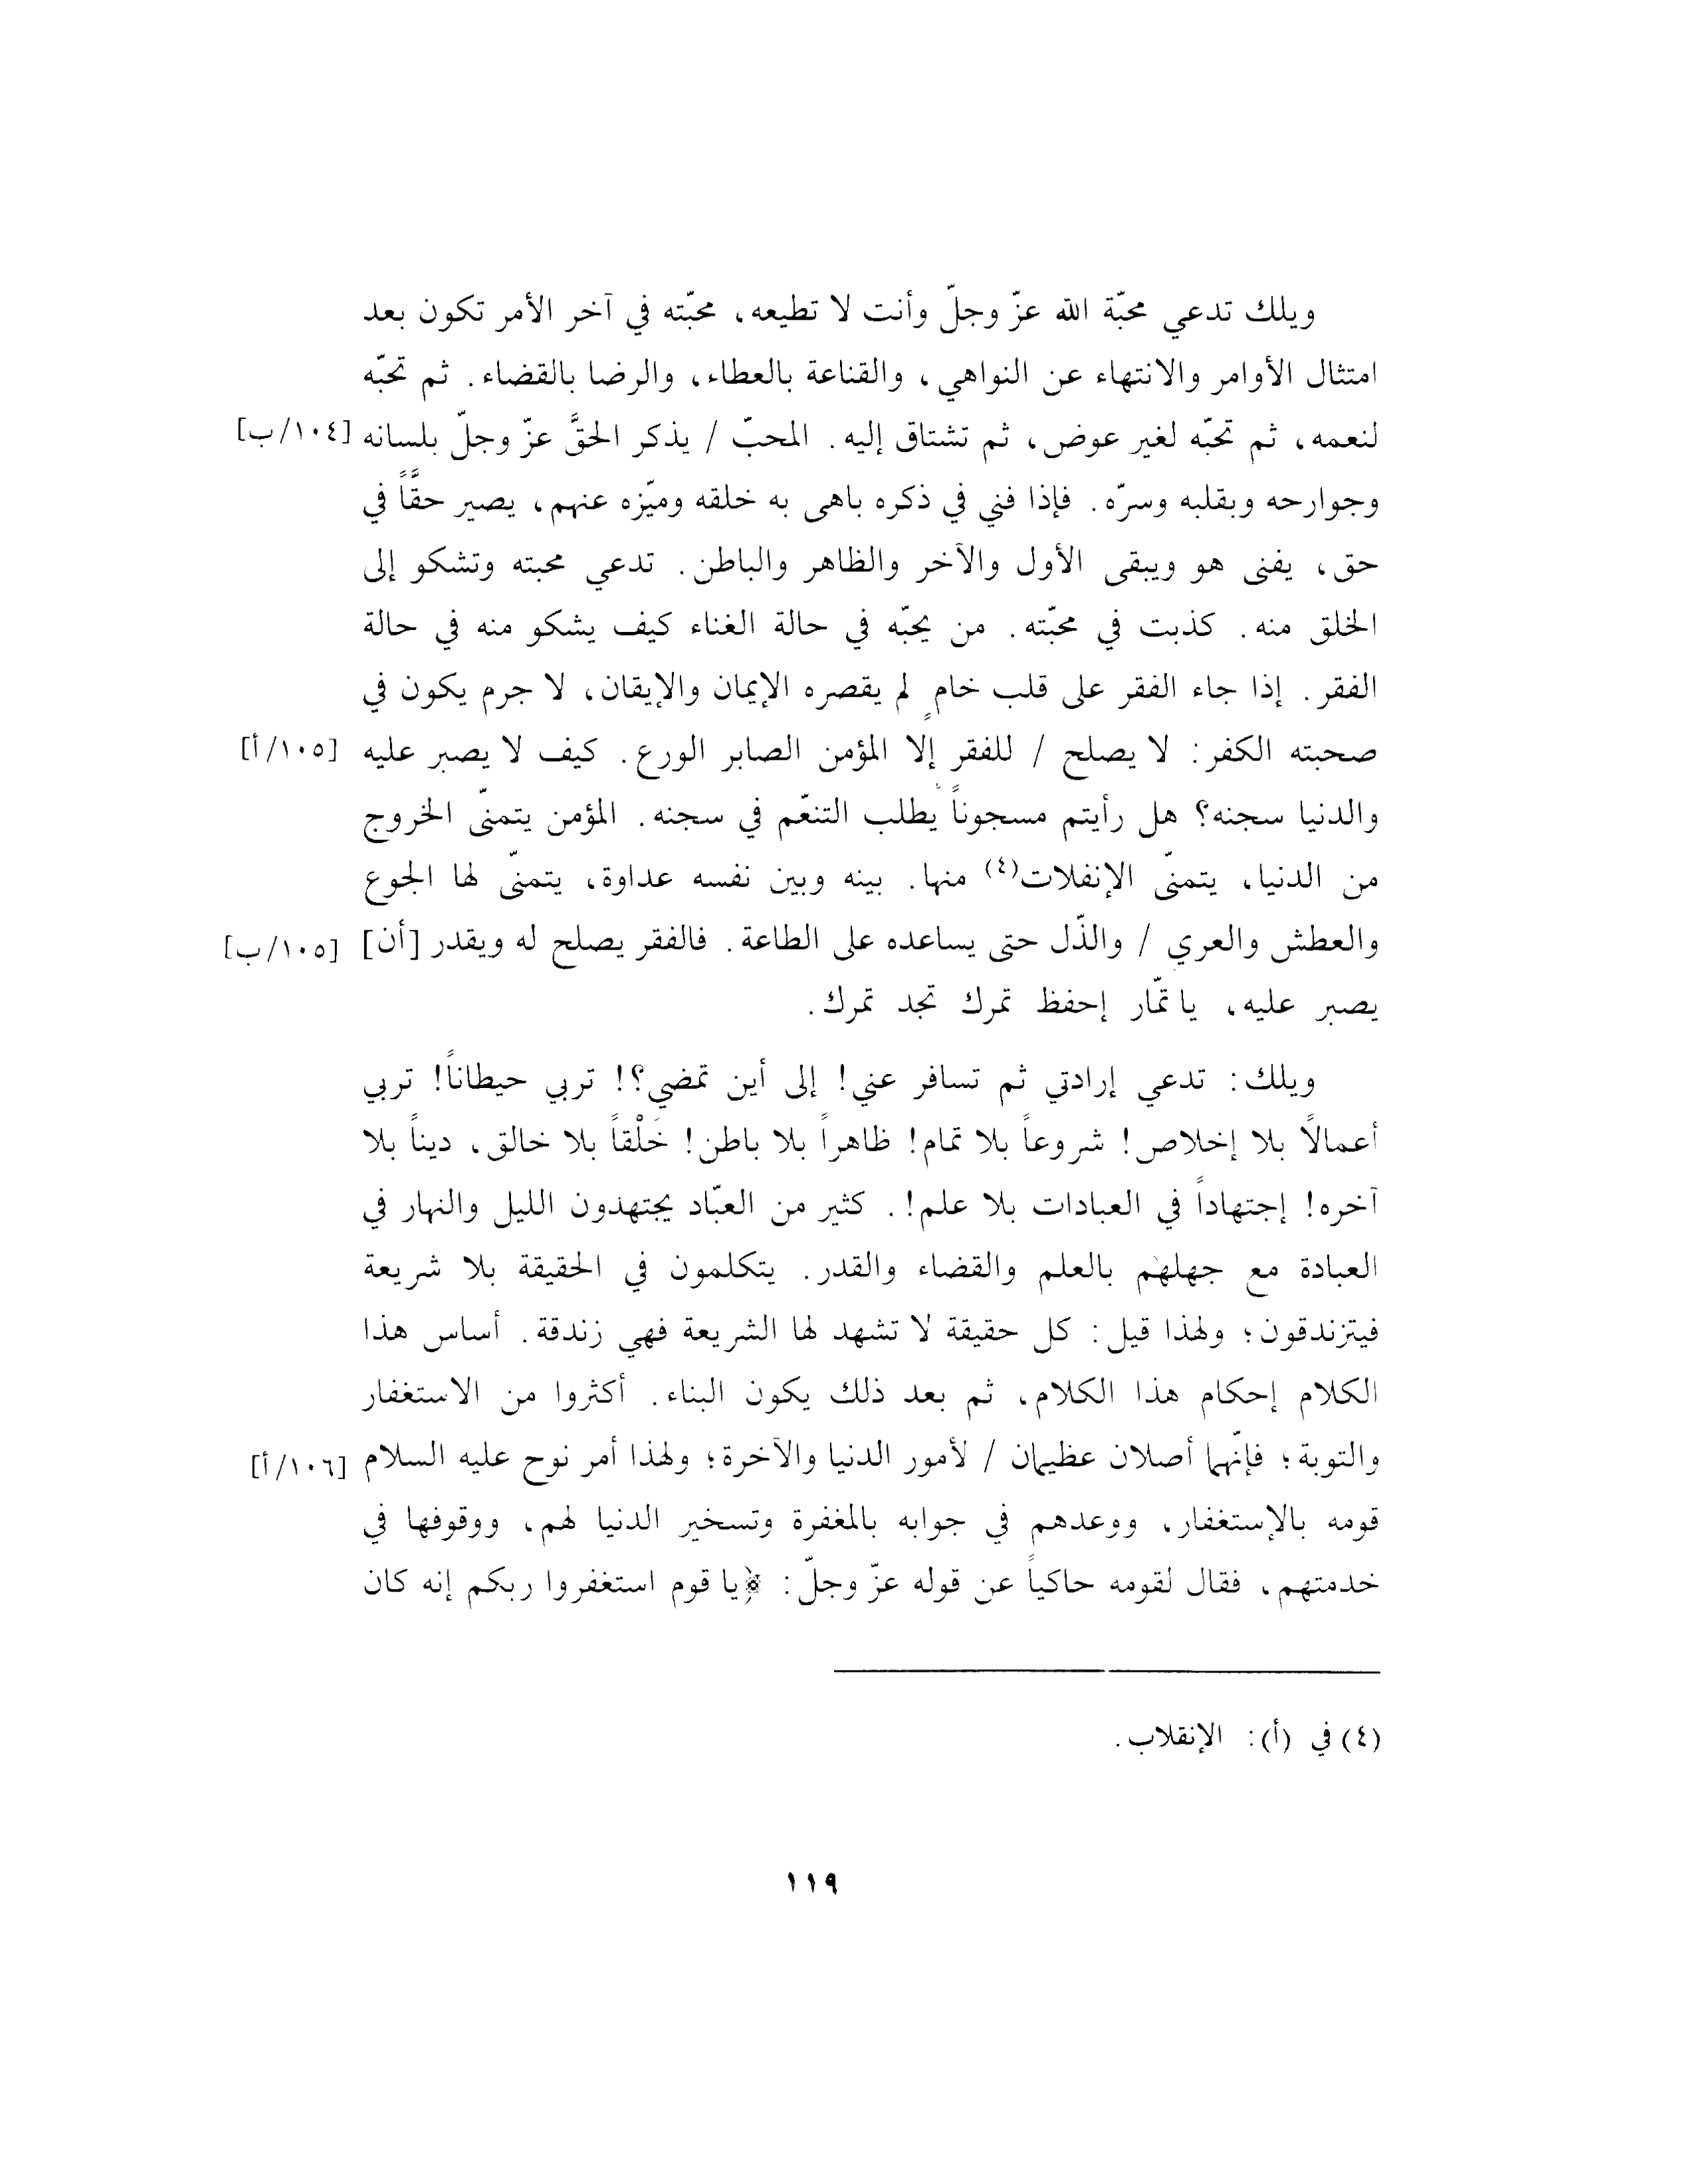 ويلك تدعي محبّة الله عزّ وجلّ وأنت لا تطيعه، محبّته في آخر الأمر تكون بعد
امتثال الأوامر والانتهاء عن النواهي، والقناعة بالعطاء، والرضا بالقضاء. ثم تحبّه
لنعمه، ثم تحبّه لغير عوض، ثم تشتاق إليه. المحبّ / يذكر الحقَّ عزّ وجلّ بلسانه [١٠٤/ب]
وجوارحه وبقلبه وسرّه. فإذا فني في ذكره باهى به خلقه وميّزه عنهم، يصير حقَّاً في
حق، يفنى هو ويبقى الأول والآخر والظاهر والباطن. تدعي محبته وتشكو إلى
الخلق منه. كذبت في محبّته. من يحبّه في حالة الغناء كيف يشكو منه في حالة
الفقر. إذا جاء الفقر على قلب خامٍ لم يقصره الإيمان والإيقان، لا جرم يكون في
صحبته الكفر: لا يصلح / للفقر إلا المؤمن الصابر الورع. كيف لا يصبر عليه [١٠٥/أ]
والدنيا سجنه؟ هل رأيتم مسجوناً يطلب التنعّم في سجنه. المؤمن يتمنّى الخروج
من الدنيا، يتمنّى الإنفلات(٤) منها. بينه وبين نفسه عداوة، يتمنّى لها الجوع
والعطش والعري / والذّل حتى يساعده على الطاعة. فالفقر يصلح له ويقدر [أن] [١٠٥/ب]
يصبر عليه، يا تمّار إحفظ تمرك تجد تمرك.
ويلك: تدعي إرادتي ثم تسافر عني! إلى أين تمضي؟! تربي حيطاناً! تربي
أعمالًا بلا إخلاص! شروعاً بلا تمام! ظاهراً بلا باطن! خَلْقاً بلا خالق، ديناً بلا
آخره! إجتهاداً في العبادات بلا علم!. كثير من العبّاد يجتهدون الليل والنهار في
العبادة مع جهلهم بالعلم والقضاء والقدر. يتكلمون في الحقيقة بلا شريعة
فيتزندقون؛ ولهذا قيل: كل حقيقة لا تشهد لها الشريعة فهي زندقة. أساس هذا
الكلام إحكام هذا الكلام، ثم بعد ذلك يكون البناء. أكثروا من الاستغفار
والتوبة؛ فإنّهما أصلان عظيمان / لأمور الدنيا والآخرة؛ ولهذا أمر نوح عليه السلام [١٠٦/أ]
قومه بالإستغفار، ووعدهم في جوابه بالمغفرة وتسخير الدنيا لهم، ووقوفها في
خدمتهم، فقال لقومه حاكياً عن قوله عزّ وجلّ: ﴿يا قوم استغفروا ربكم إنه كان
(٤) في (أ): الإنقلاب.
١١٩